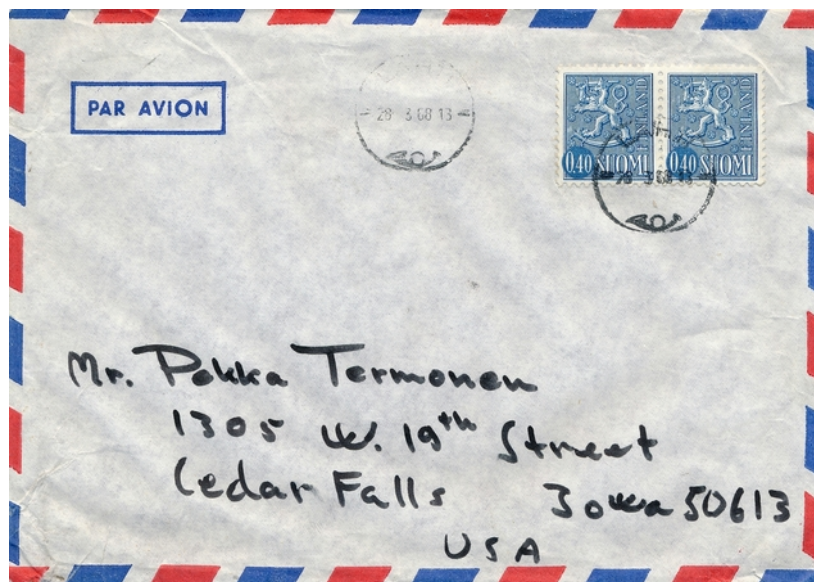 PAR AVION
28 3.68 13
0,40 SUOMI
FINLAND
0,40 SUOMI
FINLAND
Mr. Pekka Termonen
1305 W. 19th Street
Cedar Falls Iowa 50613
USA